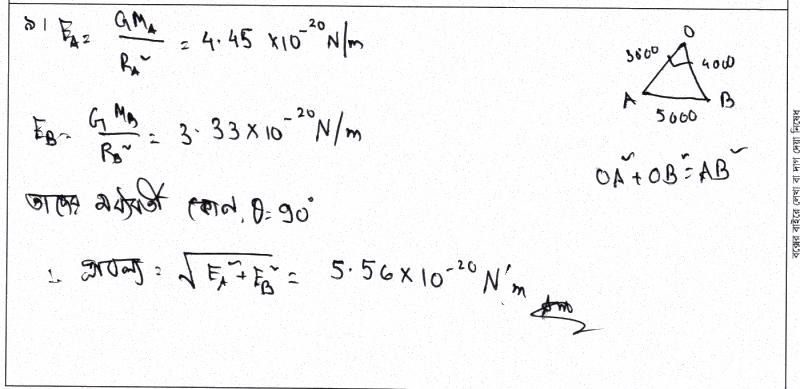 ৯। E_A = GM_A / R_A² = 4.45 ×10⁻²⁰ N/m
E_B = G M_B / R_B² = 3.33×10⁻²⁰ N/m
তাদের মধ্যবর্তী কোন, θ = 90°
∴ প্রাবল্য = √(E_A² + E_B²) = 5.56 × 10⁻²⁰ N/m Ans
O
3000 4000
A B
5000
OA² + OB² = AB²
বক্সের বাইরে লেখা বা দাগ দেয়া নিষেধ